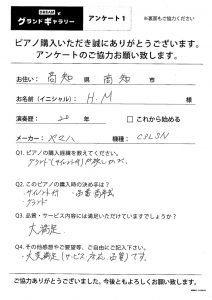 グランドギャラリー アンケート1 ※裏面もご協力ください
ピアノ購入いただき誠にありがとうございます。
アンケートのご協力お願い致します。
お住い： 高知 県 高知 市
お名前（イニシャル）： H.M 様
演奏歴： 年 □ これから始める
メーカー： ヤマハ 機種：
Q1. ピアノの購入経緯を教えてください。
グランド
Q2. このピアノの購入時の決め手は？
サイレント付
・グランド
Q3. 品質・サービス内容には満足いただけていますでしょうか？
大満足
Q4. その他感想やご要望等、ご自由にご記入下さい。
大変満足(サービス、品質)です。
ご協力ありがとうございました。今後ともよろしくお願い致します。